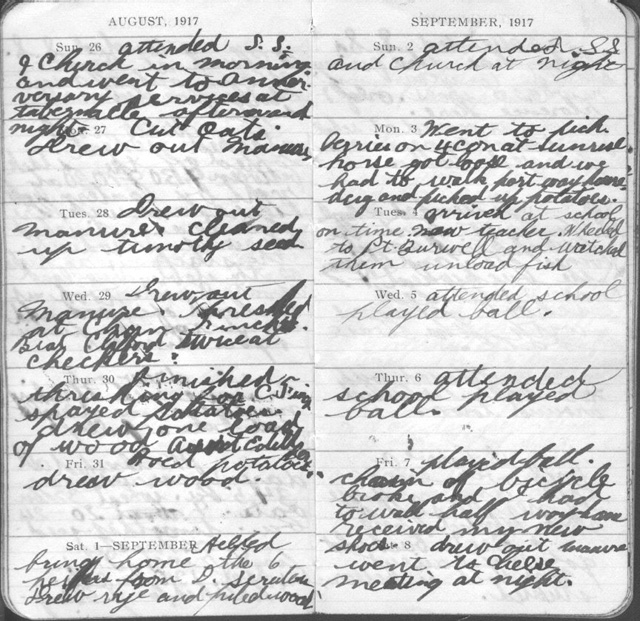 AUGUST, 1917
Sun. 26 attended S. S.
& Church in morning
and went to anni-
versary services at
tabernacle afternoon and
night.
Mon. 27 Cut oats.
Drew out manure
Tues. 28 Drew out
manure cleaned
up timothy seed
Wed. 29 Drew out
manure. Threshed
at
Beat Clifford twice at
checkers.
Thur. 30 Finished
threshing for C.
sprayed potatoes
drew one load
of wood Aunt
Fri. 31 Hoed potatoes
drew wood.
Sat. 1—SEPTEMBER Helped
bring home the 6
from D.
Drew rye and piled wood
SEPTEMBER, 1917
Sun. 2 attended S.S
and Church at night
Mon. 3 Went to pick
berries on 4 con at sunrise
horse got loose and we
had to walk part way home
dug and picked up potatoes.
Tues. 4 arrived at school
on time new teacher. Wheeled
to Pt. Burwell and watched
them unload fish
Wed. 5 attended school
played ball.
Thur. 6 attended
school played
ball.
Fri. 7 played ball.
chain of bicycle
broke and I had
to walk half way home
received my new
shoes
Sat. 8 drew out manure
went to cheese
meeting at night.